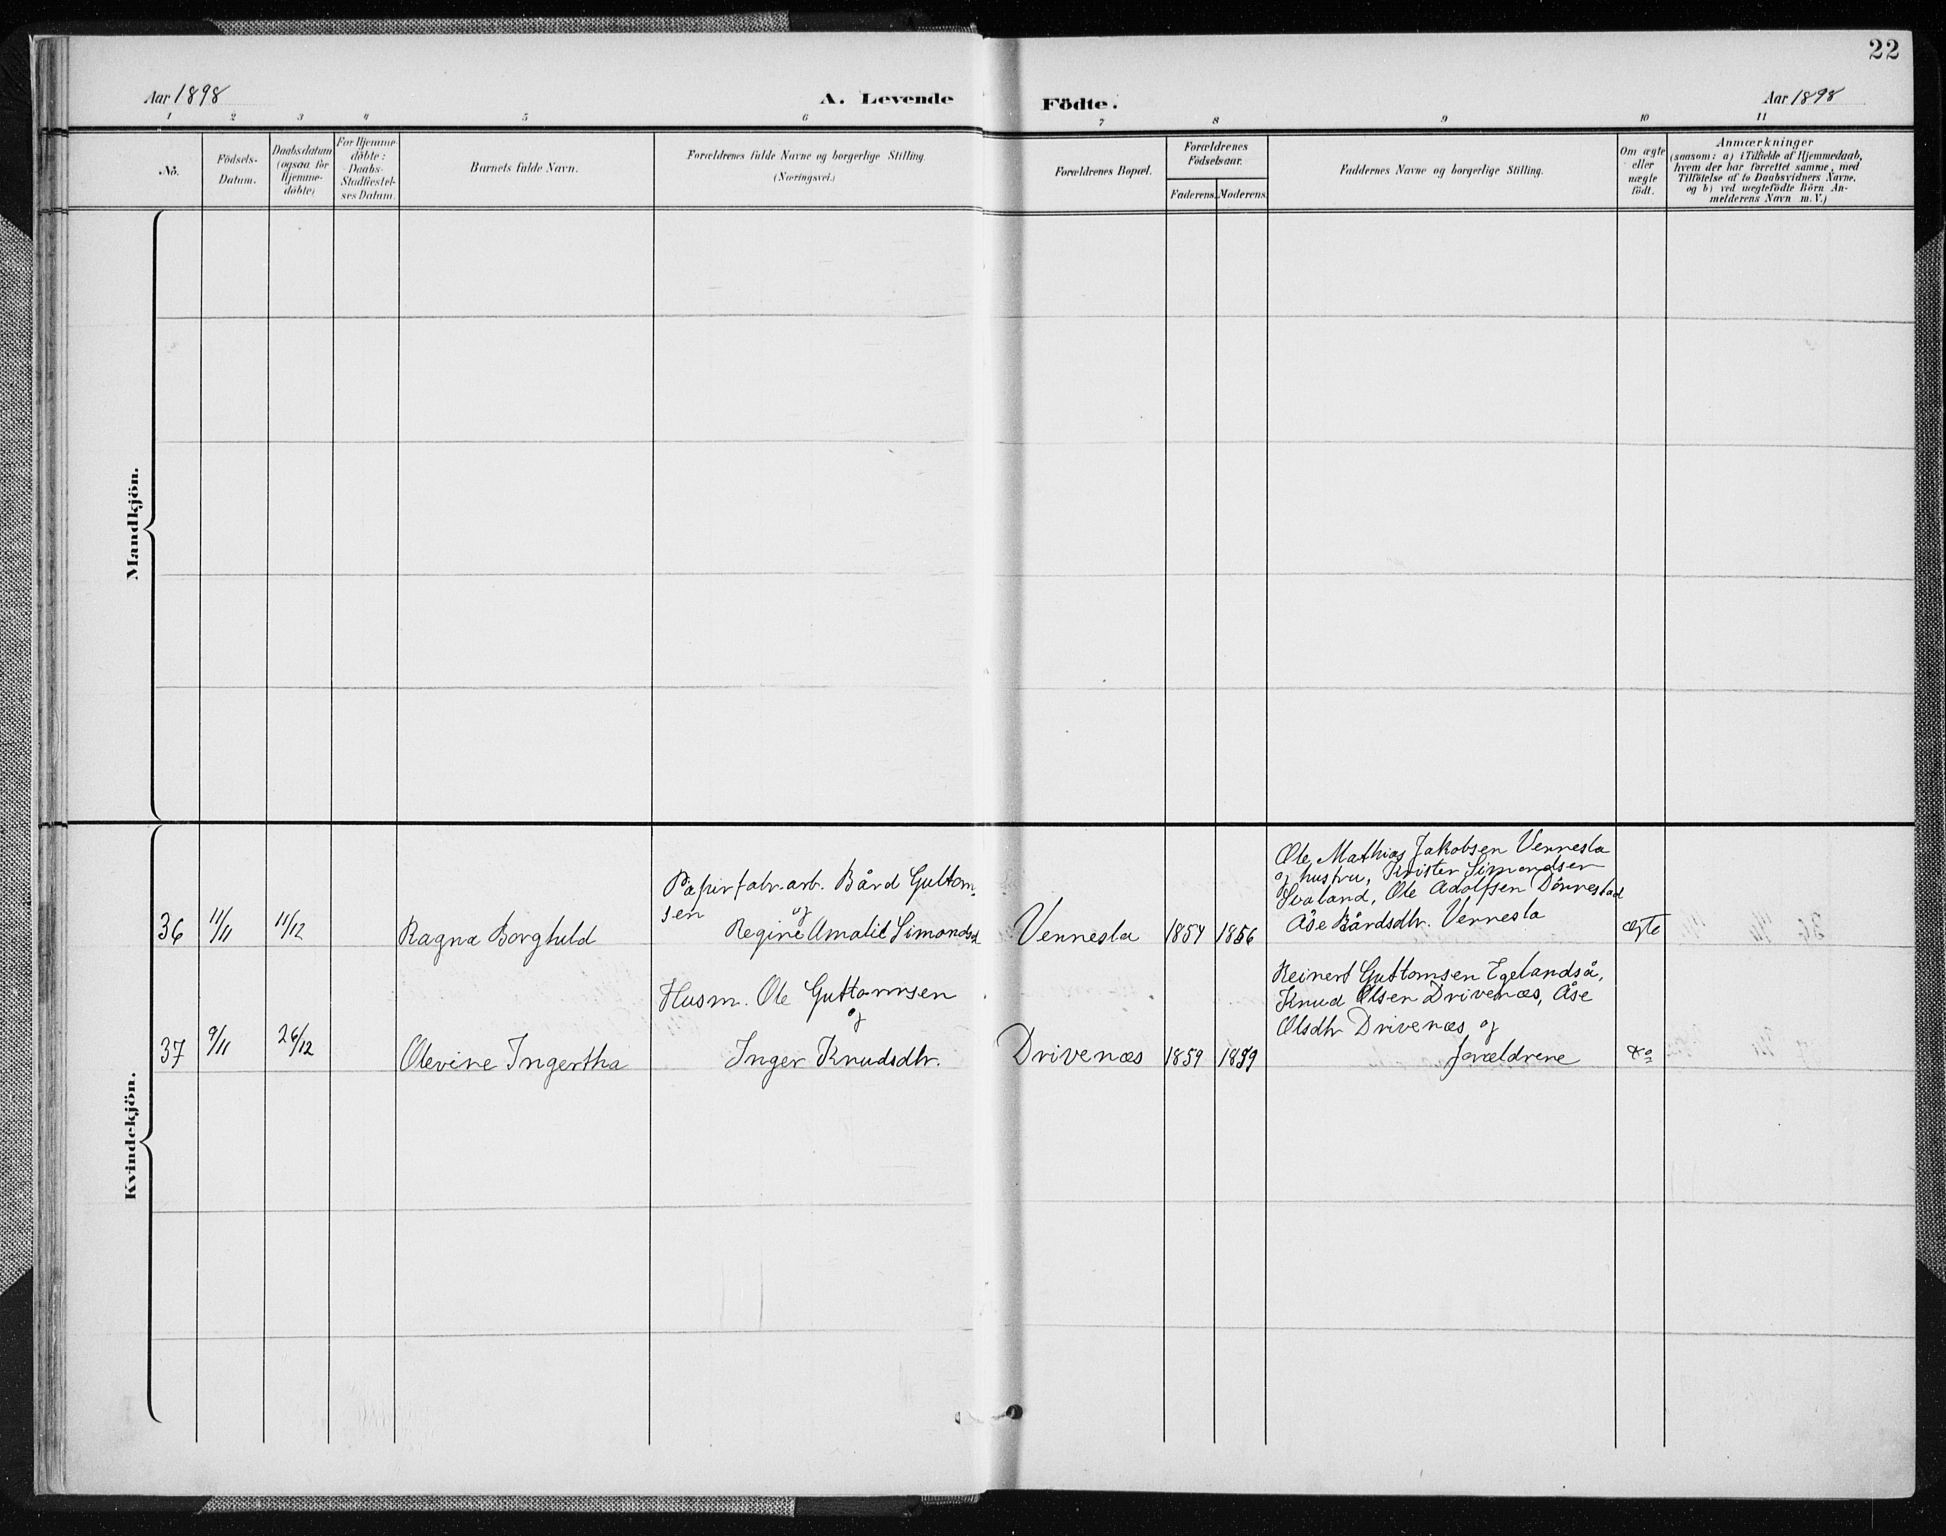 22
Aar 1898
A. Levende
Födte.
Aar 1898
1 2 3 4 5 6 7 8 9 10 11
No.
Födsels-
Datum.
Daabsdatum
(ogsaa for
Hjemme-
döbte)
For Hjemme
döbte:
Daabs-
Stadfæstel-
ses Datum.
Barnets fulde Navn.
Forældrenes fulde Navne og borgerlige Stilling.
(Næringsvei.)
Forældrenes Bopæl.
Forældrenes
Födselsaar.
Faderens.
Moderens.
Faddernes Navne og borgerlige Stilling.
Om ægte
eller
uægte
födt.
Anmærkninger
(saasom: a) i Tilfælde af Hjemmedaab,
hvem der har forrettet samme, med
Tilföielse af to Daabsvidners Navne,
og b) ved uægtefödte Börn An-
melderens Navn m. V.)
Mandkjön.
Kvindekjön.
36
11/11
11/12
Ragna Borghild
Papirfabr. arb. Bård Guttom-
sen
og
Regine Amalie Simonds
Vennesla
1854
1856
Ole Mathias Jakobsen Vennesla
og hustru, Krister Simondsen
Svaland, Ole Adolfsen Dönnestad
Åse Bårdsdtr. Vennesla
ægte
37
9/11
26/12
Olevine Ingertha
Husm. Ole Guttormsen
og
Inger Knudsdtr.
Drivenæs
1859
1859
Reinert Guttomsen Egelandså,
Knud Olsen Drivenæs, Åse
Olsdtr Drivenæs og
forældrene